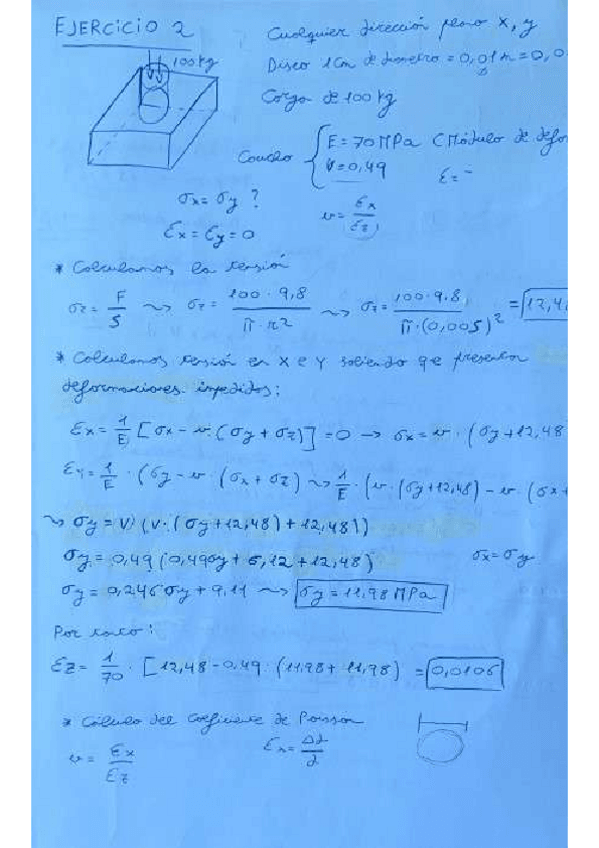 EJERCICIO 2
Cualquier dirección plano x, y
100 kg
Disco 1 cm de diametro = 0,01 m = 0,0
Carga de 100 kg
Caucho { E = 70 MPa (Módulo de defo
ν = 0,49
Ez = -
σx = σy ?
εx = εy = 0
ν = εx / εz
* Calculamos la tensión
σz = F/S ⇝ σz = 100 · 9,8 / π · r² ⇝ σz = 100 · 9.8 / π · (0,005)² = 12,4
* Calculamos tensión en X e Y sabiendo que presentan
deformaciones impedidas:
εx = 1/E [σx - ν · (σy + σz)] = 0 → σx = ν · (σy + 12,48)
εy = 1/E · (σy - ν · (σx + σz) ⇝ 1/E · (ν · (σy + 12,48) - ν · (σx +
⇝ σy = ν (ν · (σy + 12,48) + 12,48))
σy = 0,49 (0,49σy + 6,12 + 12,48)
σx = σy
σy = 0,245 σy + 9,11 ⇝ σy = 11,98 MPa
Por tanto:
εz = 1/70 · [12,48 - 0,49 · (11,98 + 11,98) = 0,0106
* Cálculo del coeficiente de Poisson
ν = εx / εz
εx = Δl / l